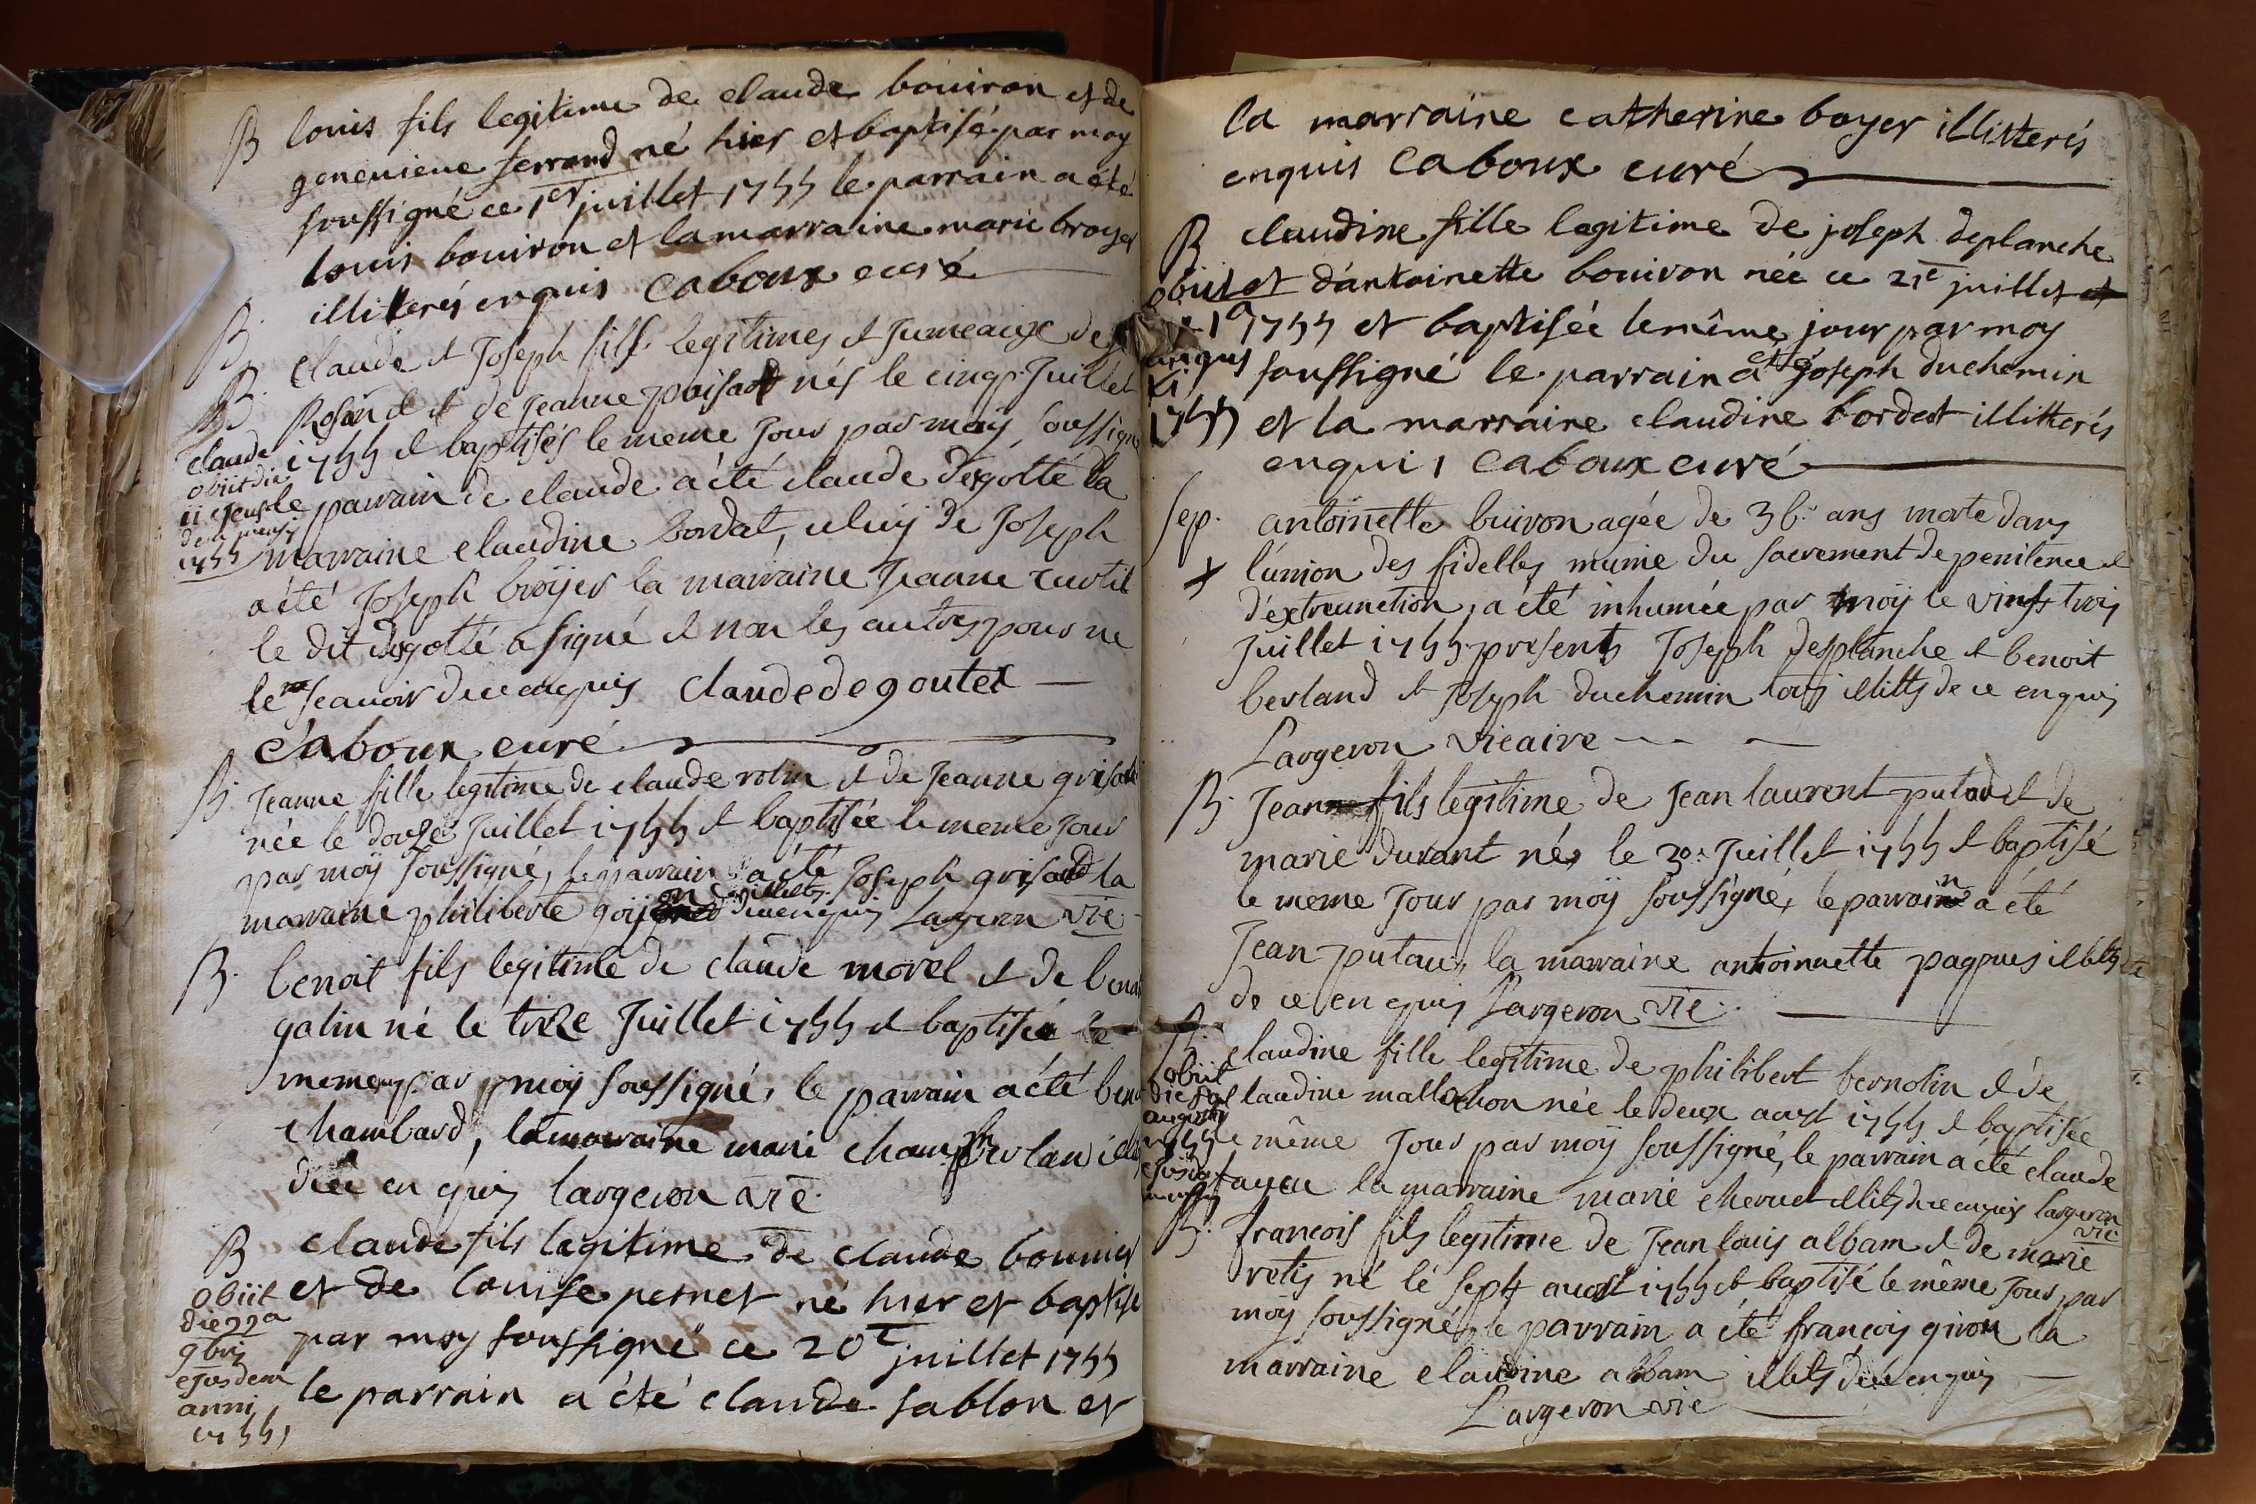 B louis fils legitime de claude bouiron et de
genevieve ferrand né hier et baptisé par moy
soussigné ce 1er juillet 1755 le parrain a été
louis bouiron et la marraine marie broyer
illitterés enquis caboux curé
B. claude et Joseph fils legitimes et Jumeaux de
B. Rosand et de Jeanne poisad nés le cinq Juillet
1755 et baptisés le meme Jour par moÿ soussigné
claude
obiit die
11 ejusde
1755
le parrain de claude a été claude degotté la
marraine claudine bordat, celuy de Joseph
a été Joseph broÿer la marraine Jeanne curtil
le dit degotté a signé et non les autres pour ne
le scavoir de ce enquis claude degoutet
caboux curé
B. Jeanne fille legitime de claude rolin et de Jeanne grisard
née le douze Juillet 1755 et baptisée le meme Jour
par moÿ soussigné, le parrain a été Joseph grisard la
marraine philiberte goÿon illitts de ce enquis Largeron vic
B. benoit fils legitime de claude morel et de
galin né le treize Juillet 1755 et baptisé le
meme par moÿ soussigné, le parrain a été
chambard, la marraine marie
de ce en quis largeron vic.
B claude fils legitime de claude bounier
et de louise pernet né hier et baptisé
par moy soussigné ce 20e juillet 1755
le parrain a été claude sablon et
obiit
die 22a
9bris
ejusdem
anni
1755
la marraine catherine boyer illitterés
enquis caboux curé
B claudine fille legitime de joseph deplanche
et d'antoinette bouiron née ce 21e juillet
1755 et baptisée le même jour par moy
soussigné le parrain a été joseph duchemin
et la marraine claudine bordat illitterés
enquis caboux curé
obiit
1a
augus
ti
1755
Sep. antoinette buiron agée de 36. ans morte dans
l'union des fidelles munie du sacrement de penitence et
d'extreunction, a été inhumée par moÿ le vingt trois
Juillet 1755 presents Joseph desplanche et benoit
berland et Joseph duchemin tous illitts de ce enquis
Largeron vicaire
B. Jean fils legitime de Jean laurent putod et de
marie durant né le 30. Juillet 1755 et baptisé
le meme Jour par moÿ soussigné, le parrain a été
Jean putau, la marraine anthoinette pagnus illitts
de ce en quis Largeron vic.
B. claudine fille legitime de philibert bernolin et de
claudine mallochon née le deux aoust 1755 et baptisée
le même Jour par moÿ soussigné, le parrain a été claude
tayeu la marraine marie chervet illits de ce enquis Largeron
vic
obiit
die
augusti
1755
B. françois fils legitime de Jean louis albam et de marie
retis né le sept aoust 1755 et baptisé le même Jour par
moÿ soussigné, le parrain a été françois giron la
marraine claudine albam illits de ce enquis
Largeron vic